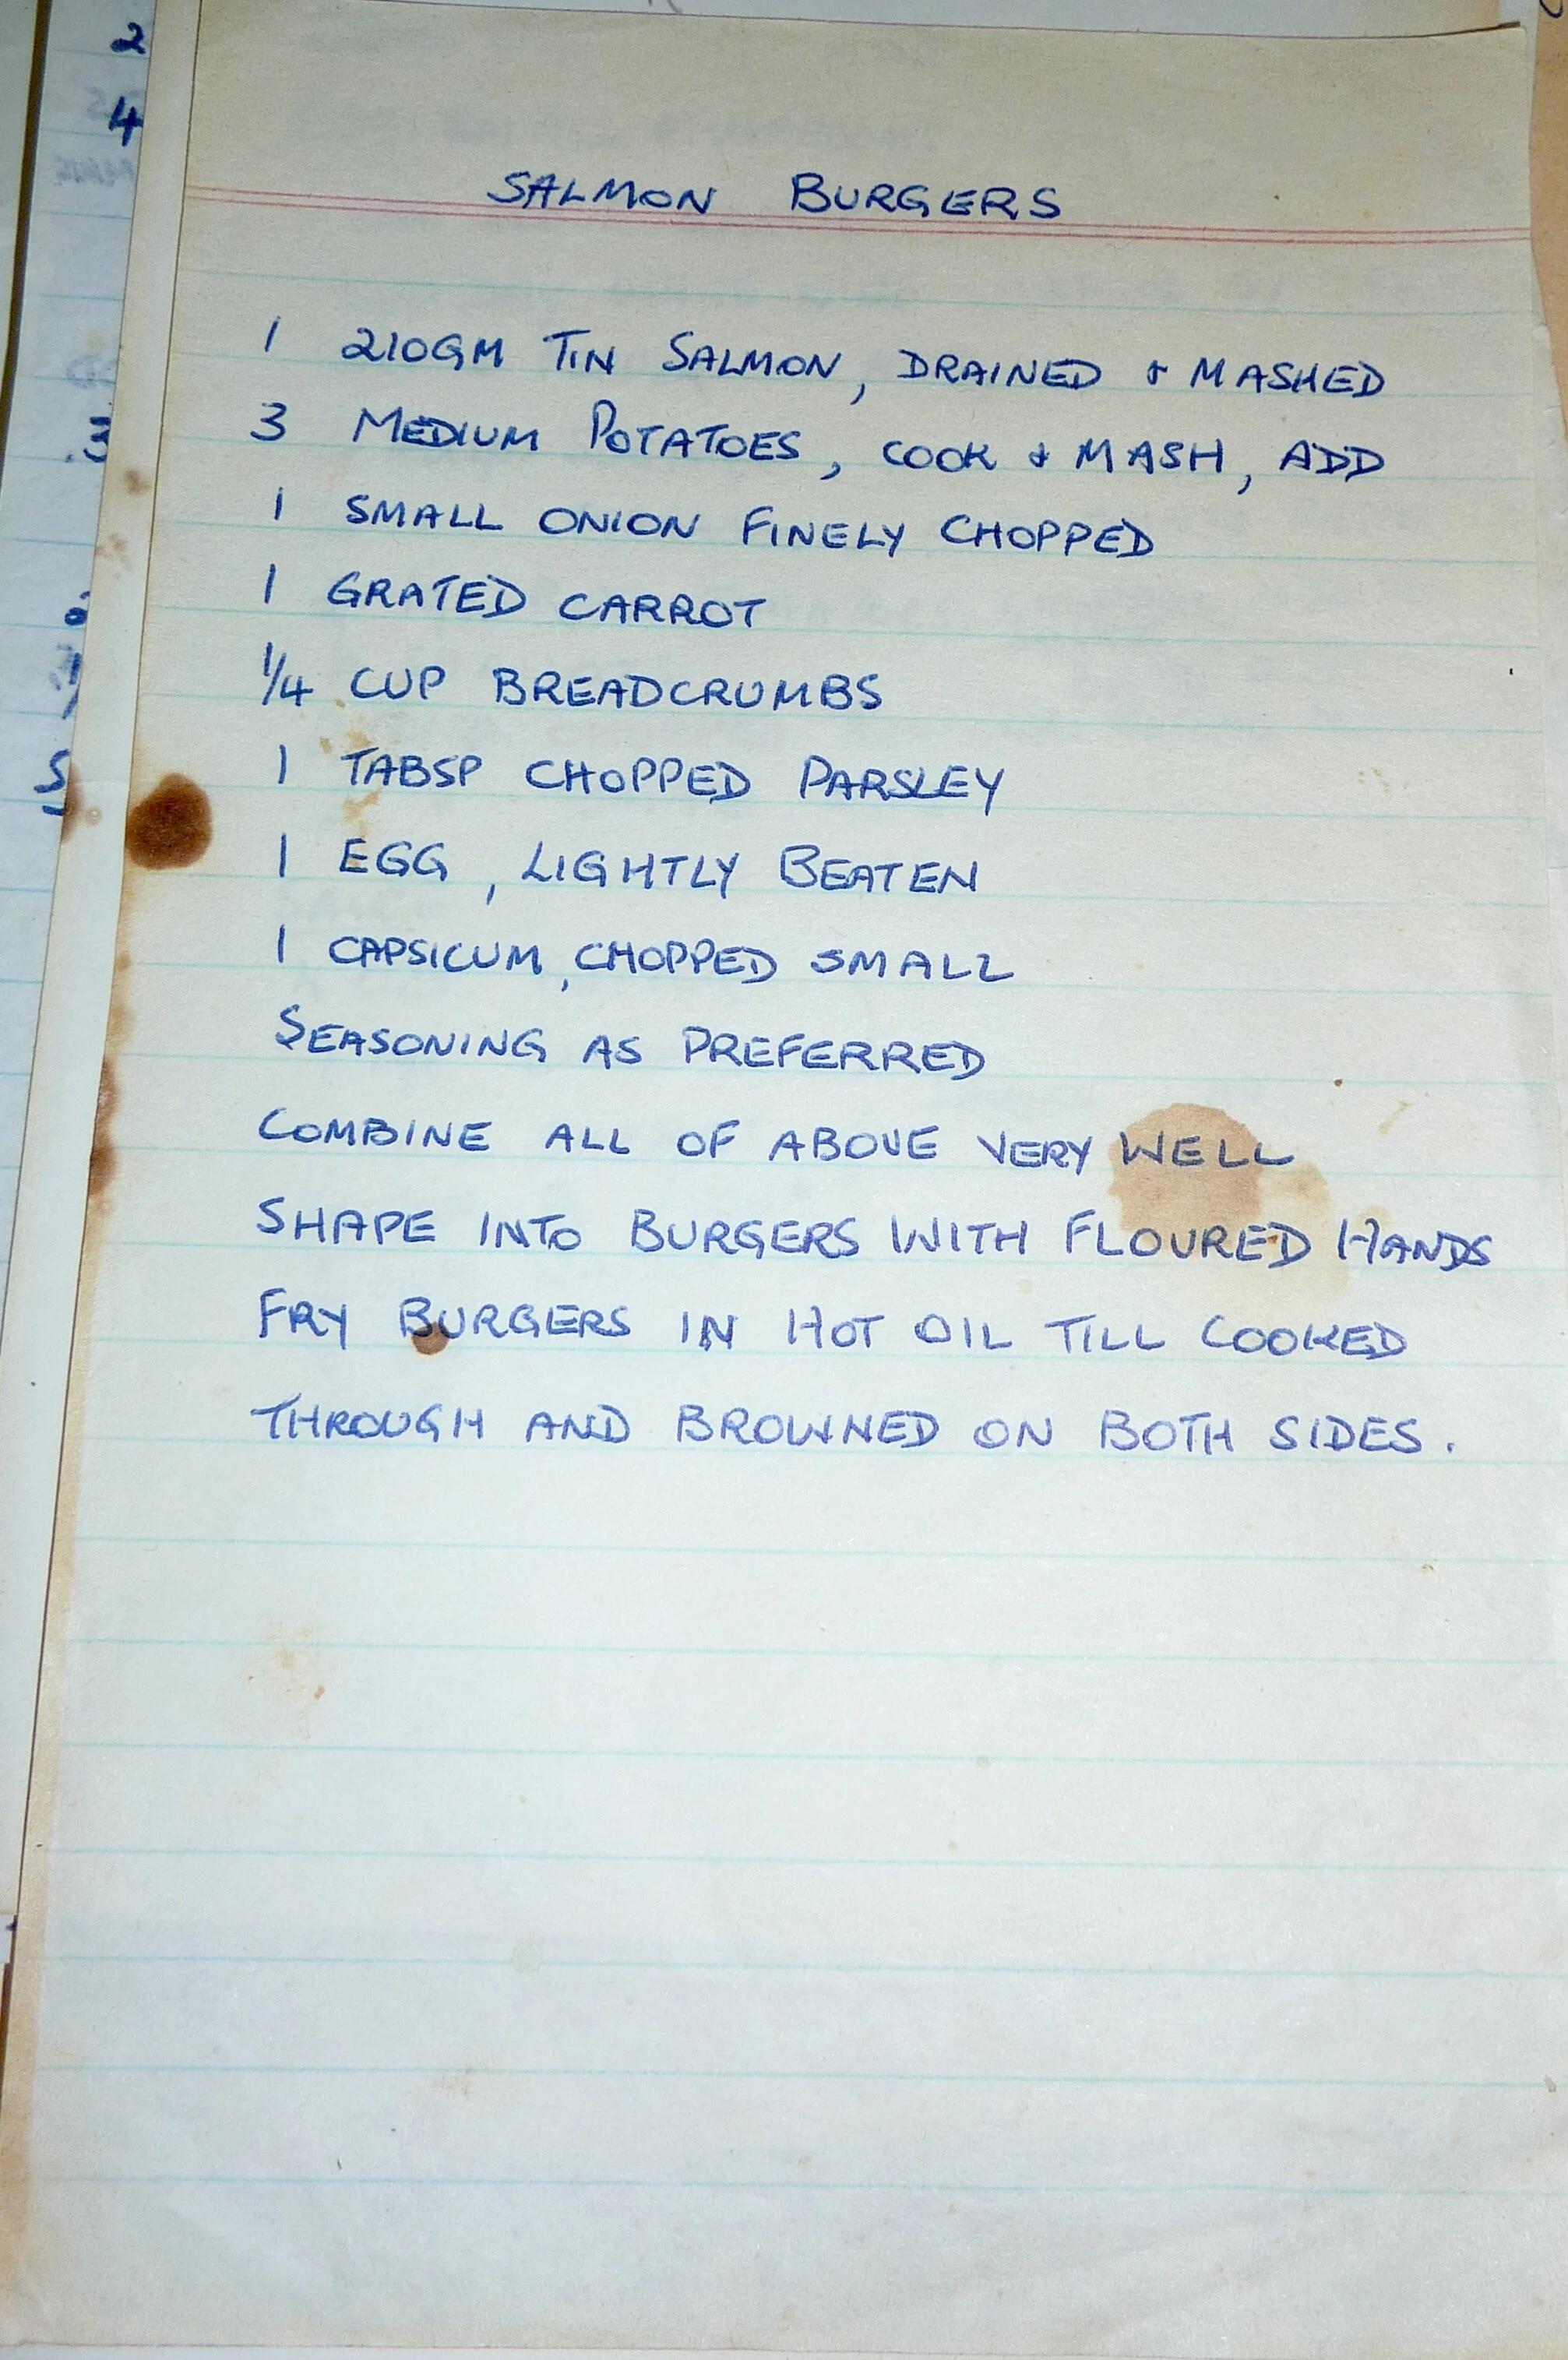 SALMON BURGERS
1 210GM TIN SALMON, DRAINED & MASHED
3 MEDIUM POTATOES, COOK & MASH, ADD
1 SMALL ONION FINELY CHOPPED
1 GRATED CARROT
1/4 CUP BREADCRUMBS
1 TABSP CHOPPED PARSLEY
1 EGG, LIGHTLY BEATEN
1 CAPSICUM, CHOPPED SMALL
SEASONING AS PREFERRED
COMBINE ALL OF ABOVE VERY WELL
SHAPE INTO BURGERS WITH FLOURED HANDS
FRY BURGERS IN HOT OIL TILL COOKED
THROUGH AND BROWNED ON BOTH SIDES.
2
4
3